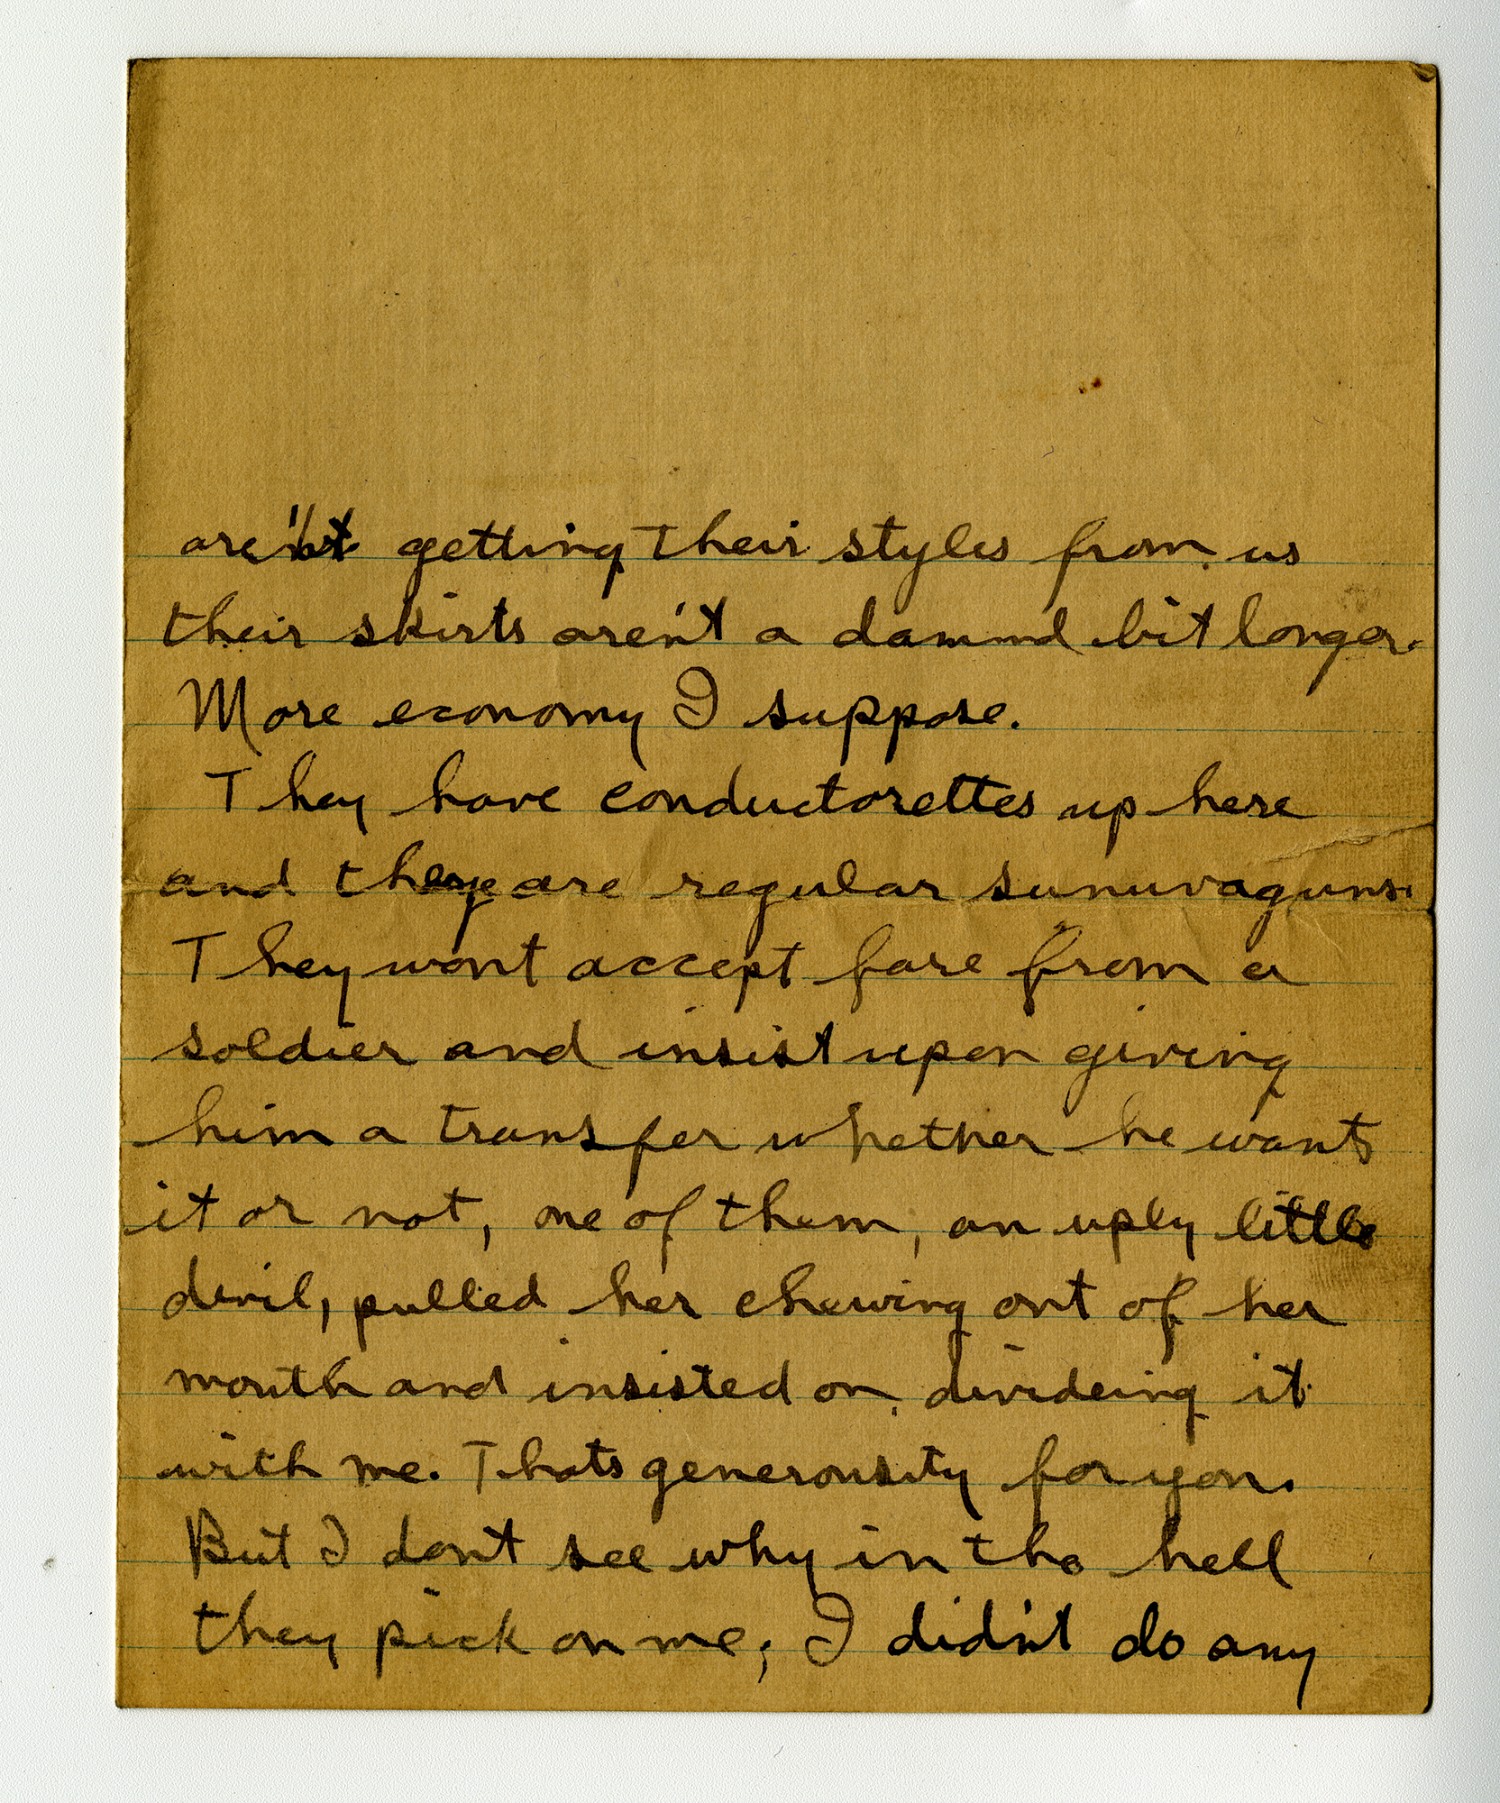 aren't getting their styles from us
their skirts aren't a dammd bit longer.
More economy I suppose.
They have conductorettes up here
and they are regular sunuvaguns.
They wont accept fare from a
soldier and insist upon giving
him a transfer whether he wants
it or not, one of them, an uply little
devil, pulled her chewing out of her
mouth and insisted on divideing it
with me. Thats generousity for you.
But I don't see why in the hell
they pick on me; I didn't do any